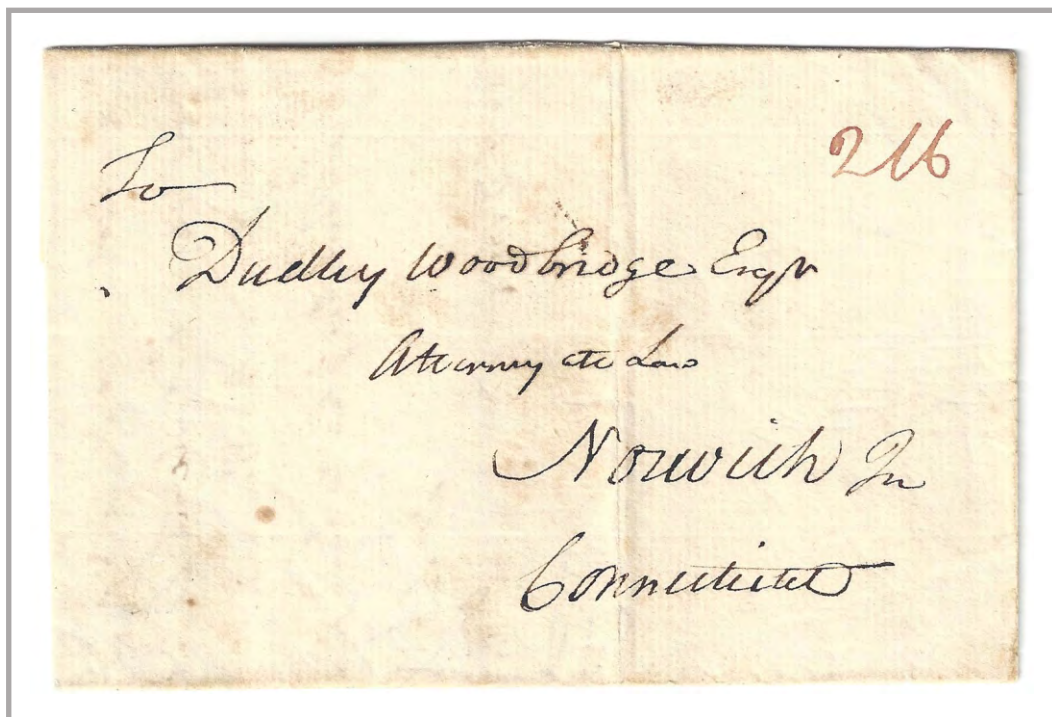 216
To
Dudley Woodbridge Esqr
Attorney att Law
Norwich In
Connecticutt